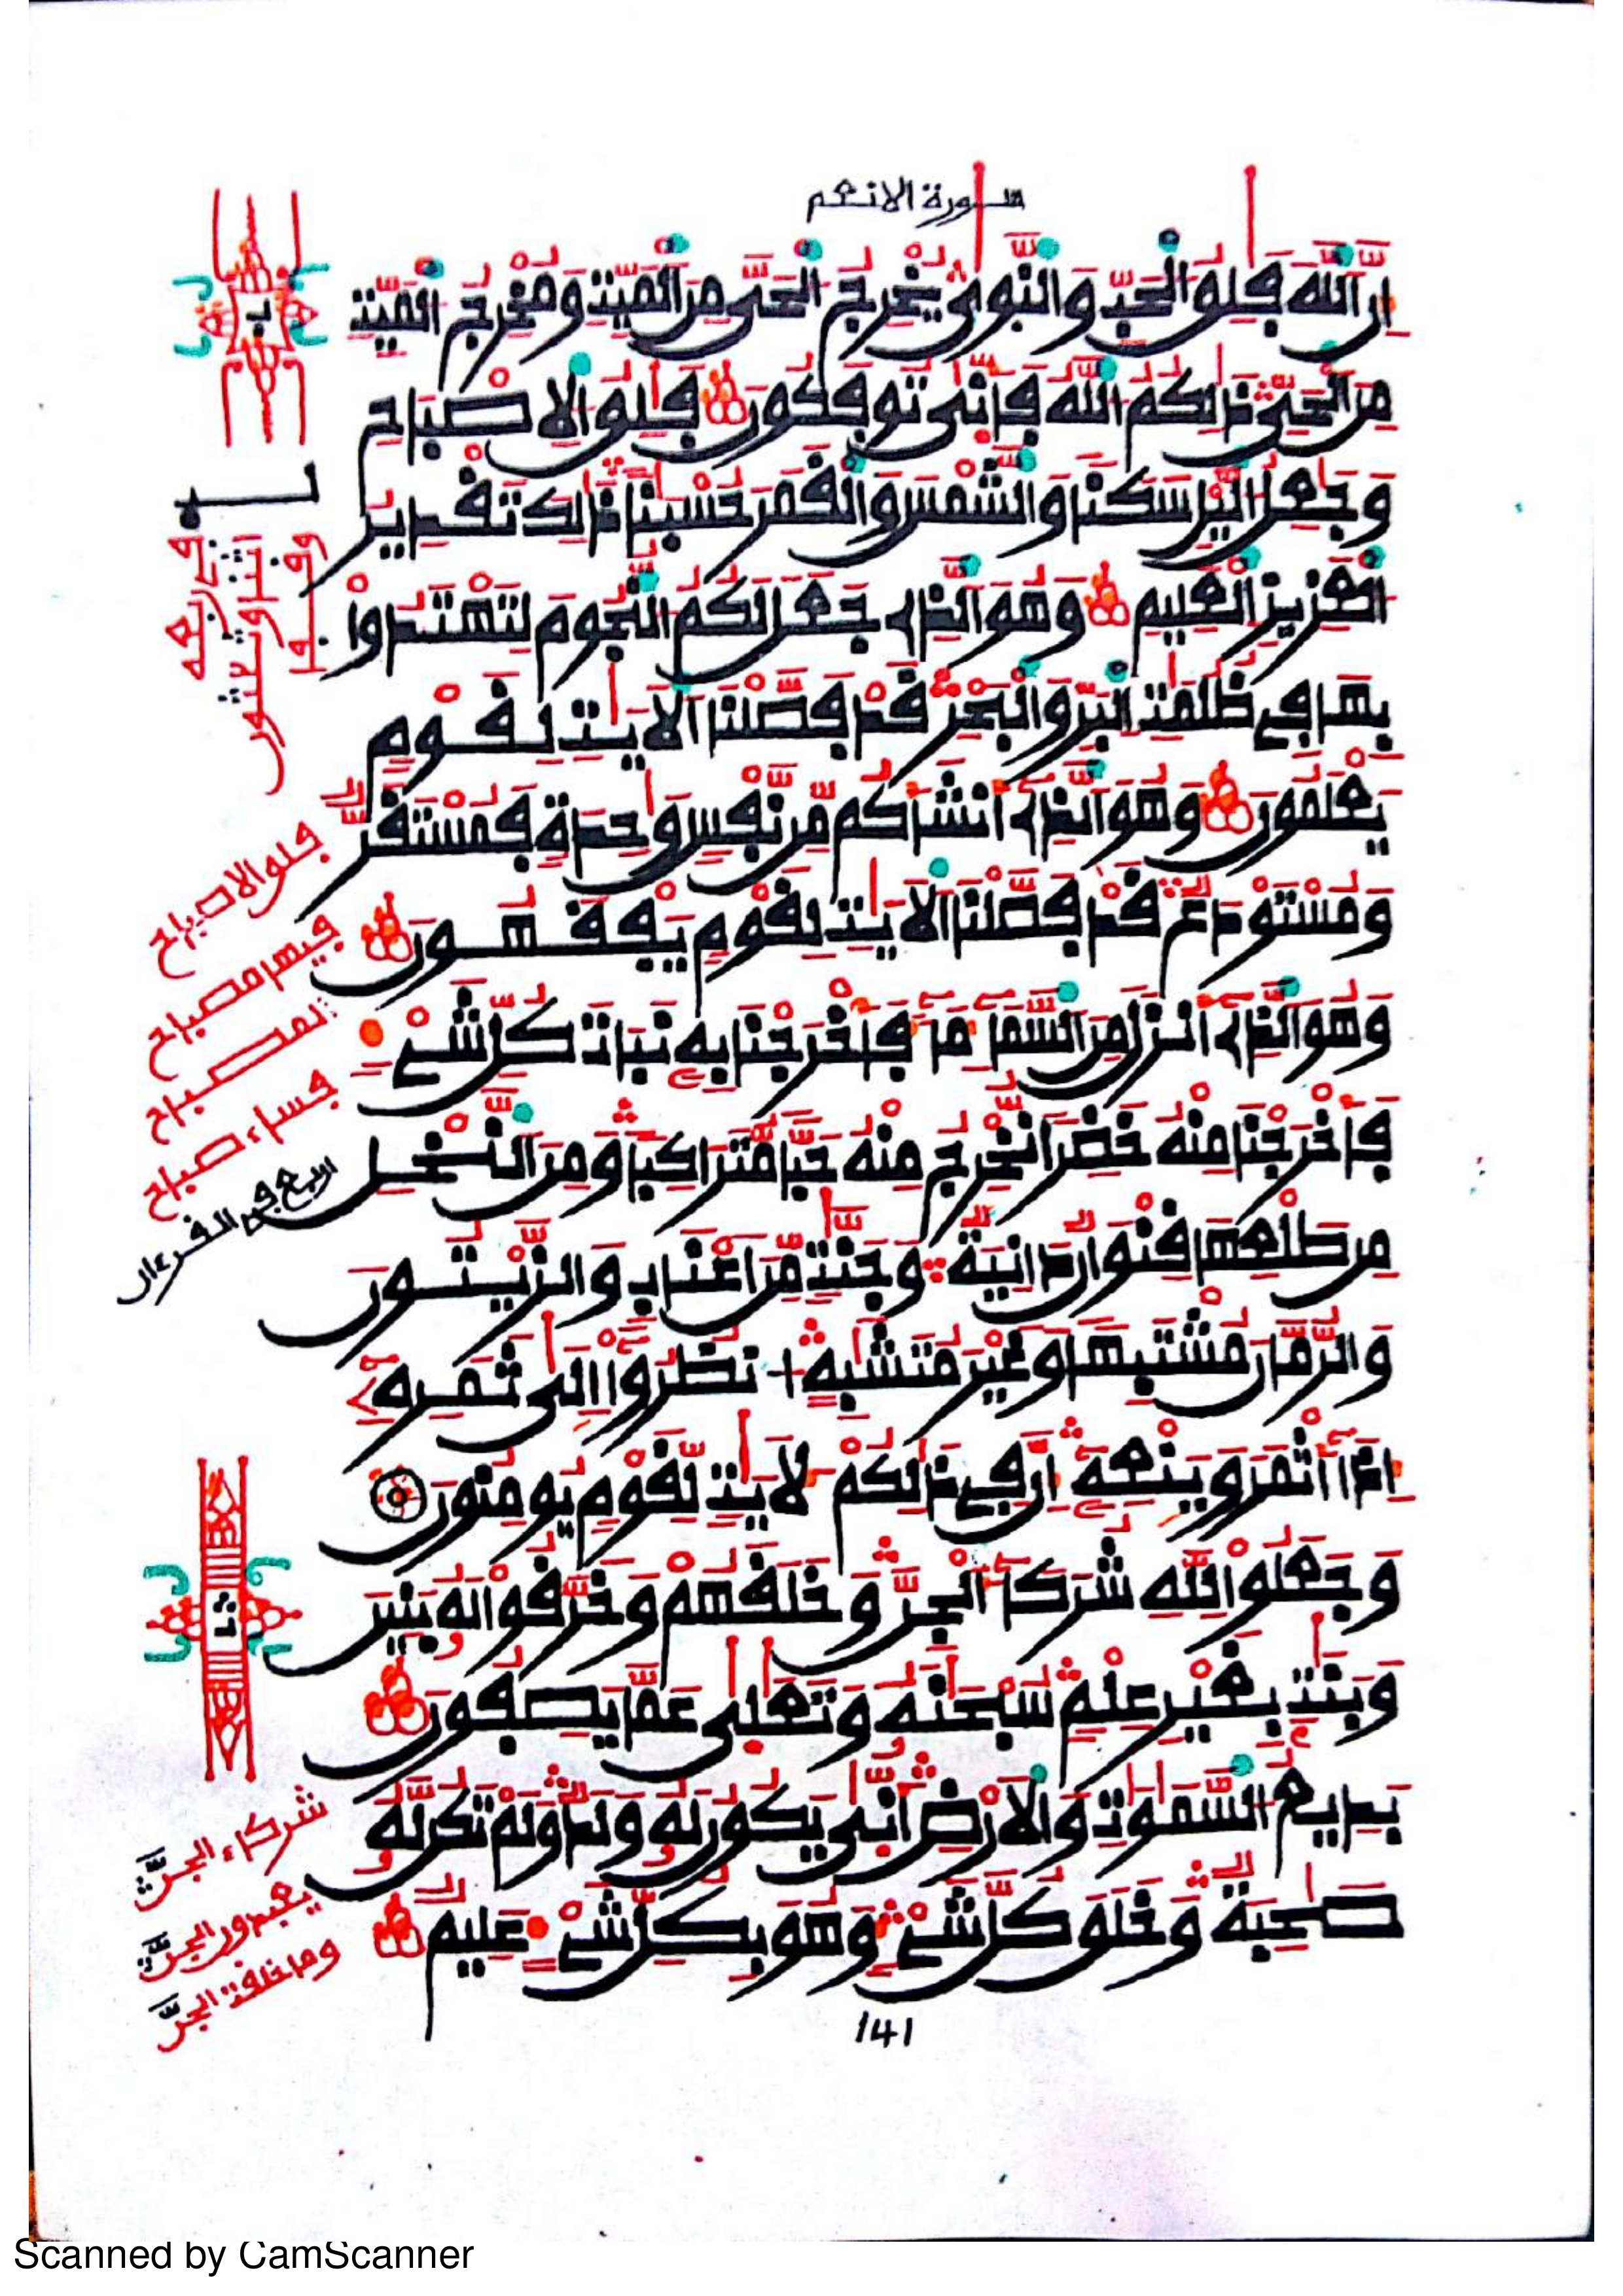 سورة الانعم
اِنَّ اَللَّهَ فَلِقُ اُلْحَبِّ وَالنَّوٜىٰ يُخْرِجُ اُلْحَيَّ مِنَ اَلْمَيِّتِ وَمُخْرِجُ اُلْمَيِّتِ
مِنَ اَلْحَيِّ ذَٰلِكُمُ اُللَّهُ فَأَنّٜىٰ تُوفَكُونَ فَلِقُ اُلِاصْبَاحِ
وَجَٰعِلُ اُليْلِ سَكَناً وَالشَّمْسَ وَالْقَمَرَ حُسْبَٰناً ذَٰلِكَ تَقْدِيرُ
اُلْعَزِيزِ اِلْعَلِيمِ وَهُوَ اَلذِے جَعَلَ لَكُمُ اُلنُّجُومَ لِتَهْتَدُواْ
بِهَا فِے ظُلُمَٰتِ اِلْبَرِّ وَالْبَحْرِ قَدْ فَصَّلْنَا اَلَايَٰتِ لِقَوْمٍ
يَعْلَمُونَ وَهُوَ اَلذِے أَنشَأَكُم مِّن نَّفْسٍ وَٰحِدَةٍ فَمُسْتَقَرٌّ
وَمُسْتَوْدَعٌ قَدْ فَصَّلْنَا اَلَايَٰتِ لِقَوْمٍ يَفْقَهُونَ
وَهُوَ اَلذِے أَنزَلَ مِنَ اَلسَّمَآءِ مَآءً فَأَخْرَجْنَا بِهِ نَبَاتَ كُلِّ شَےْءٍ
فَأَخْرَجْنَا مِنْهُ خَضِراً نُّخْرِجُ مِنْهُ حَبّاً مُّتَرَاكِباً وَمِنَ اَلنَّخْلِ
مِن طَلْعِهَا قِنْوَانٌ دَانِيَةٌ وَجَنَّٰتٍ مِّنَ اَعْنَابٍ وَالزَّيْتُونَ
وَالرُّمَّانَ مُشْتَبِهاً وَغَيْرَ مُتَشَٰبِهٍ اُنظُرُوٓاْ إِلَىٰ ثَمَرِهِ
إِذَآ أَثْمَرَ وَيَنْعِهِ إِنَّ فِے ذَٰلِكُمْ لَأيَٰتٍ لِّقَوْمٍ يُومِنُونَ
وَجَعَلُواْ لِلهِ شُرَكَآءَ اَلْجِنَّ وَخَلَقَهُمْ وَخَرَّقُواْ لَهُ بَنِينَ
وَبَنَٰتٍ بِغَيْرِ عِلْمٍ سُبْحَٰنَهُ وَتَعَٰلٜىٰ عَمَّا يَصِفُونَ
بَدِيعُ اُلسَّمَٰوَٰتِ وَالَارْضِ أَنّٜىٰ يَكُونُ لَهُ وَلَدٌ وَلَمْ تَكُن لَّهُ
صَٰحِبَةٌ وَخَلَقَ كُلَّ شَےْءٍ وَهُوَ بِكُلِّ شَےْءٍ عَلِيمٌ
141
فلق الاصباح
فيها مصباح
المصباح
فساء صباح
اربع في القرءان
شركاء الجنَّ
يعبدون الجنَّ
وما خلقت الجنَّ
Scanned by CamScanner